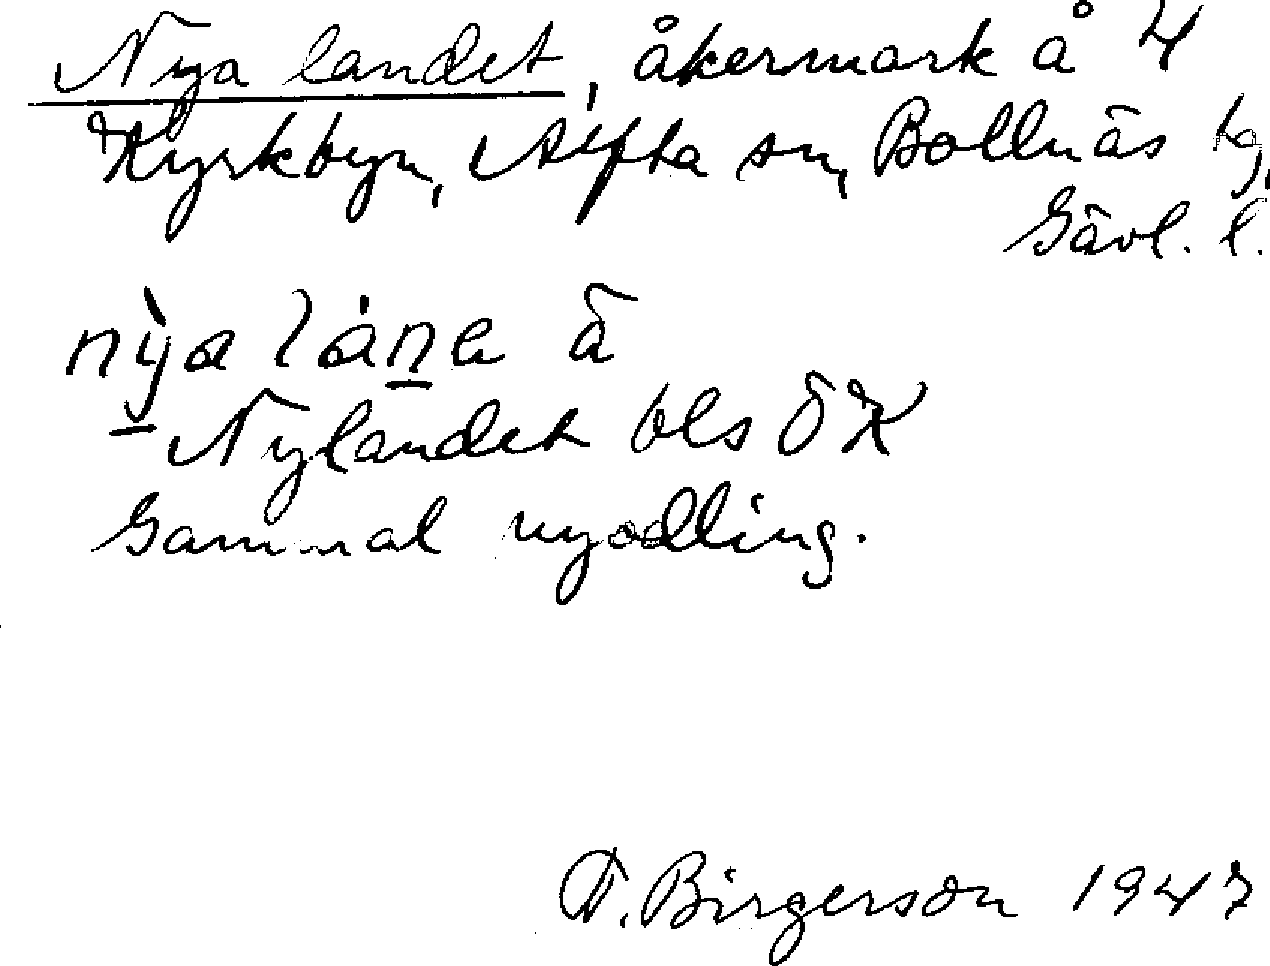 Nya landet, åkermark å 4
Kyrkbyn, Alfta sn, Bollnäs tg,
Gävl. l.
nỳa láne ä
Nylandet bls ÖK
Gammal nyodling.
F. Birgerson 1947